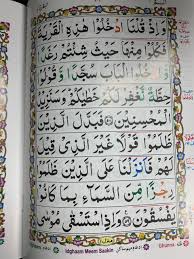 وَاِذْ قُلْنَا ادْخُلُوْا هٰذِهِ الْقَرْيَةَ
فَكُلُوْا مِنْهَا حَيْثُ شِئْتُمْ رَغَدًا
وَّادْخُلُوا الْبَابَ سُجَّدًا وَّقُوْلُوْا
حِطَّةٌ نَّغْفِرْ لَكُمْ خَطٰيٰكُمْ ؕ وَسَنَزِيْدُ
الْمُحْسِنِيْنَ ۝ فَبَدَّلَ الَّذِيْنَ
ظَلَمُوْا قَوْلًا غَيْرَ الَّذِيْ قِيْلَ
لَهُمْ فَاَنْزَلْنَا عَلَى الَّذِيْنَ ظَلَمُوْا
رِجْزًا مِّنَ السَّمَآءِ بِمَا كَانُوْا
يَفْسُقُوْنَ ۝ وَاِذِ اسْتَسْقٰى مُوْسٰى
Idghaam Meem Saakin Ghunna